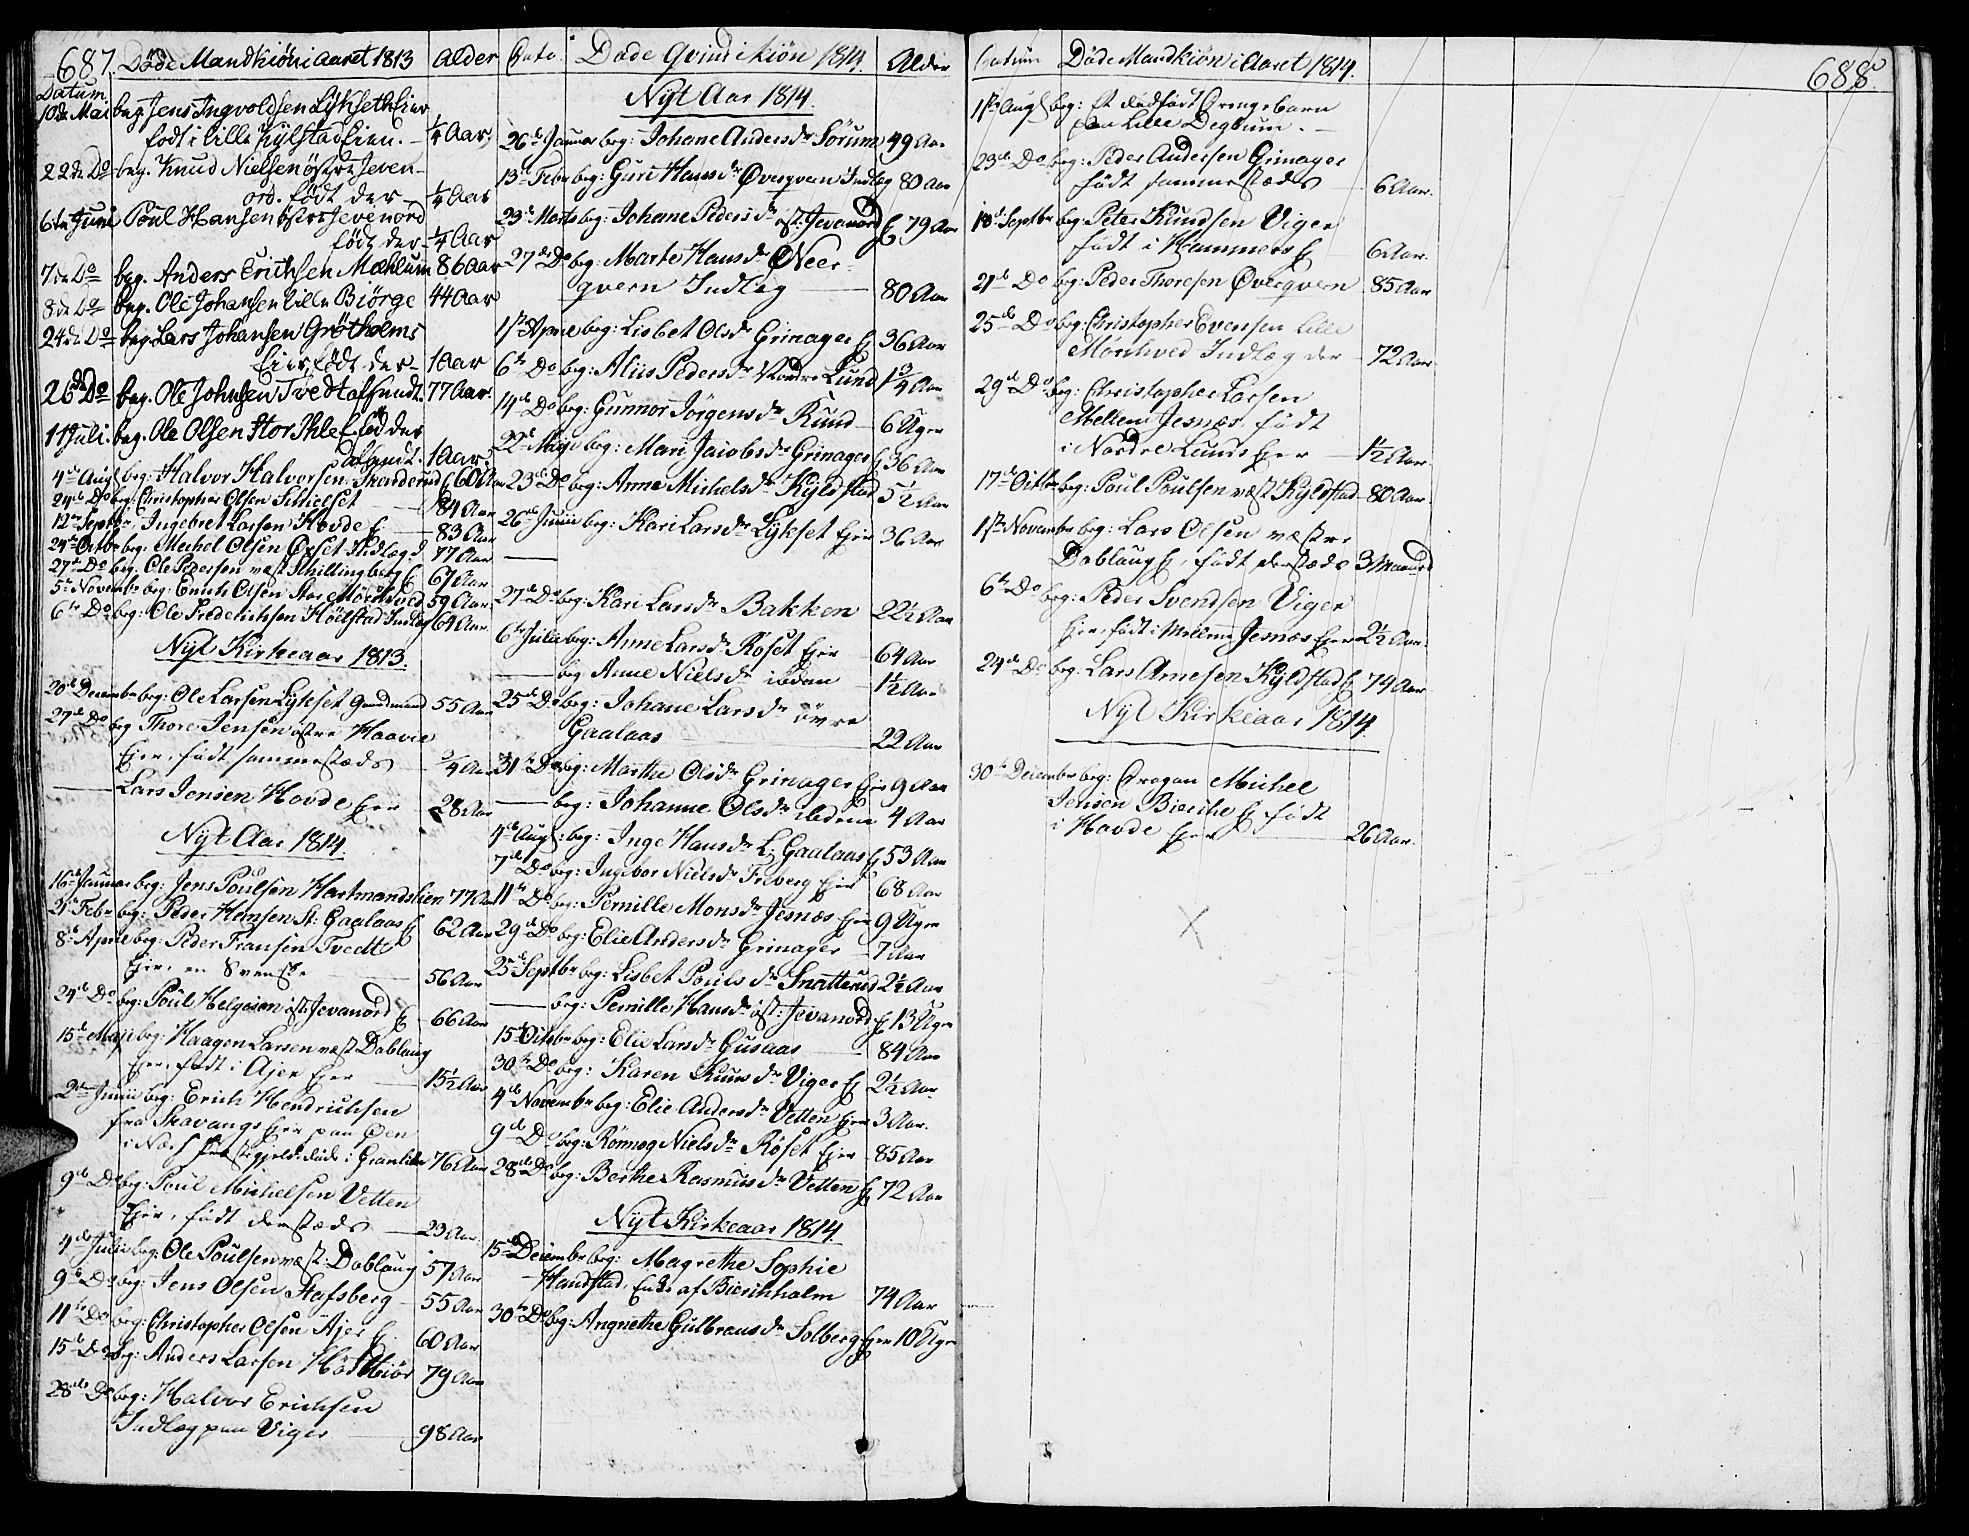 687. Døde Mandkiön i Aaret 1813 Alder
Datum
10de Mai beg. Jens Ingvoldsen Lykseth Eier
født i Lille Kylstad Eien. ¼ Aar.
22de Do beg. Knud Nielsen östre Jeven-
ord. født der ¼ Aar
6te Juni Poul Hansen östre Jevenord
født der ¼ Aar
7de Do beg. Anders Erichsen Mæhlum 86 Aar
8de Do beg. Ole Johansen Lille Biörge 44 Aar
24de Do beg. Lars Johansen Grötholms
Eier, født der 1 Aar
26de Do beg. Ole Johnsen Tvedt afsindt. 77 Aar.
11 Juli. beg. Ole Olsen Stor Ihle Ei, død der
1 Aar.
4de Augs beg: Halvor Halvorsen Skanderud E 60 Aar
24de Do beg: Christopher Olsen Simelset 84 Aar
12te Septbr Ingebret Larsen Hovde E 83 Aar
24de Octbr beg: Michel Olsen Opset Indlægd 77 Aar
27de Do beg. Ole Pedersen væst Schillingberg E 67 Aar
5te Novembr beg: Enich Olsen Stor Mörkved 59 Aar.
6te Do beg: Ole Frederichsen Höelstad Indlæg 64 Aar.
Nyt Kirkeaar 1813.
20de Decembr beg: Ole Larsen Lykset Gaardmand 55 Aar
27de Do beg Thore Jensen östre Haavie
Eier, født sammestæds ¾ Aar
Lars Jensen Hovde Eier 28 Aar
Nyt Aar 1814.
16de Januar beg: Jens Poulsen Hartmandslien 77 Aar
21de Febr beg: Peder Hansen St: Gaalaas E 62 Aar
8de Aprl beg: Peder Fransen Tvedt
Eier, en Svenske 56 Aar
24de Do beg: Poul Helgesen öst: Jevanord E 66 Aar
15de Maji beg: Haagen Larsen væst Dablaug
Eier, født i Ajer Eier 15½ Aar
2de Junii beg: Erich Hendrichsen
fra Skavangs Eier paa Öen
i Næs Præstegield, døde i Granlien 76 Aar
9de Do beg: Poul Michelsen Vetten
Eier, født derstæds 23 Aar
4de Julii beg: Ole Poulsen væst: Dablaug 57 Aar
9de Do beg: Jens Olsen Stafsberg 55 Aar
11te Do beg: Christopher Olsen Ajer E. 60 Aar
15de Do beg: Anders Larsen Höstbiör 79 Aar
28de Do beg: Halvor Erichsen
Indlæg paa Viger 98 Aar
Dato. Døde Qvindekiön 1814. Alder
Nyt Aar 1814.
26de Januar beg: Johane Andersdr Sörum 49 Aar
13de Febr beg: Guri Hansdr Øverqvern Indlæg 80 Aar
23de Marts beg: Johane Pedersdr öst: Jevanord E 79 Aar
27de Do beg: Marte Hansdr Neer-
qvern Indlæg 80 Aar
1ste Aprl beg: Lisbet Olsdr Grinager E 36 Aar
6te Do beg: Aliis Pedersdr Nordre Lund 1¾ Aar
14de Do beg: Gunnor Jörgensdr Rund 6 Uger
22de Maji beg: Mari Jacobsdr Grinager E 36 Aar
23de Do beg: Anne Michelsdr Kyldstad 5½ Aar
26de Junii beg: Kari Larsdr Lykset Eier 36 Aar
27de Do beg: Kari Larsdr Bakken 22½ Aar
6te Julii beg: Anne Larsdr Röset Eier 64 Aar
beg Anne Nielsdr ibden 1½ Aar
25de Do beg: Johane Larsdr övre
Gaalaas 22 Aar
31te Do beg: Marthe Olsdr Grinager Eier 9 Aar
beg: Johanne Olsdr ibdem 4 Aar
4de Augs: beg: Inge Hansdr L: Gaalaas E 53 Aar
7de Do beg: Ingebor Nielsdr Freberg Eier 68 Aar
11te Do beg: Pernille Monsdr Jesnæs Eier 9 Uger
29de Do beg: Elie Andersdr Grinager 7 Aar
25de Septbr beg: Lisbet Poulsdr Snatterud 2½ Aar
beg: Pernille Hansdr öst: Jevanord E 13 Uger
15de Octobr beg: Elie Larsdr Gusaas 84 Aar
30te Do beg: Karen Knudsdr Viger E 2½ Aar
4de Novembr beg: Elie Andersdr Vetten Eier 3 Aar.
9de Do beg: Rönnog Nielsdr Röset Eier 85 Aar
28de Do beg: Berthe Rasmusdr Vetten E 72 Aar
Nyt Kirkeaar 1814.
15de Decembr beg: Magrethe Sophie
Handstad, Enke af Bierchholm 74 Aar
30te Do beg: Angnethe Gulbransdr Solberg Eier 10 Uger
Datum Döde Mandkiön i Aaret 1814. 688
1ste Augs beg: Et dødfødt Drengebarn
paa Lille Deglum.
23de Do beg: Peder Andersen Grinager
født sammestæds 6 Aar.
18de Septbr beg: Peter Knudsen Viger
født i Hammers E 6 Aar.
21de Do beg: Peder Thoresen Øverqvern 85 Aar
25de Do beg: Christopher Evensen Lille
Mörchved Indlæg der 72 Aar
29de Do beg: Christopher Larsen
Mellem Jesnæs, født
i Nordre Lunds Eier 1½ Aar
17de Octbr beg: Poul Poulsen væst Kyldstad 80 Aar.
1ste Novembr beg: Lars Olsen væstre
Dablaug E, født derstæds 3 Maaned
6te Do beg: Peder Svendsen Viger
Eier, født i Mellem Jesnæs Eier 2½ Aar.
24de Do beg: Lars Arnesen Kyldstad E 74 Aar
Nyt Kirkeaar 1814.
30te Decembr beg: Dragon Michel
Jensen Bierche E født
i Hovde Eier 26 Aar.